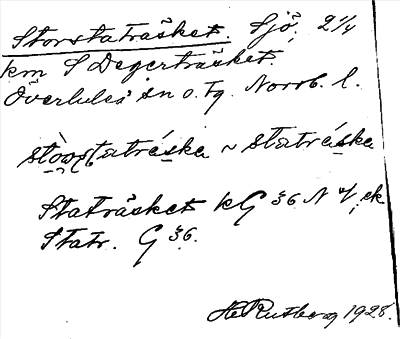 Storstaträsket. Sjö, 2 1/4
km S Degerträsket.
Överluleå sn o. tg. Norrb. l.
stòostatréska ~ statréska
Staträsket kG 36 N v, ek
Statr. G 36.
H Rutberg 1928.